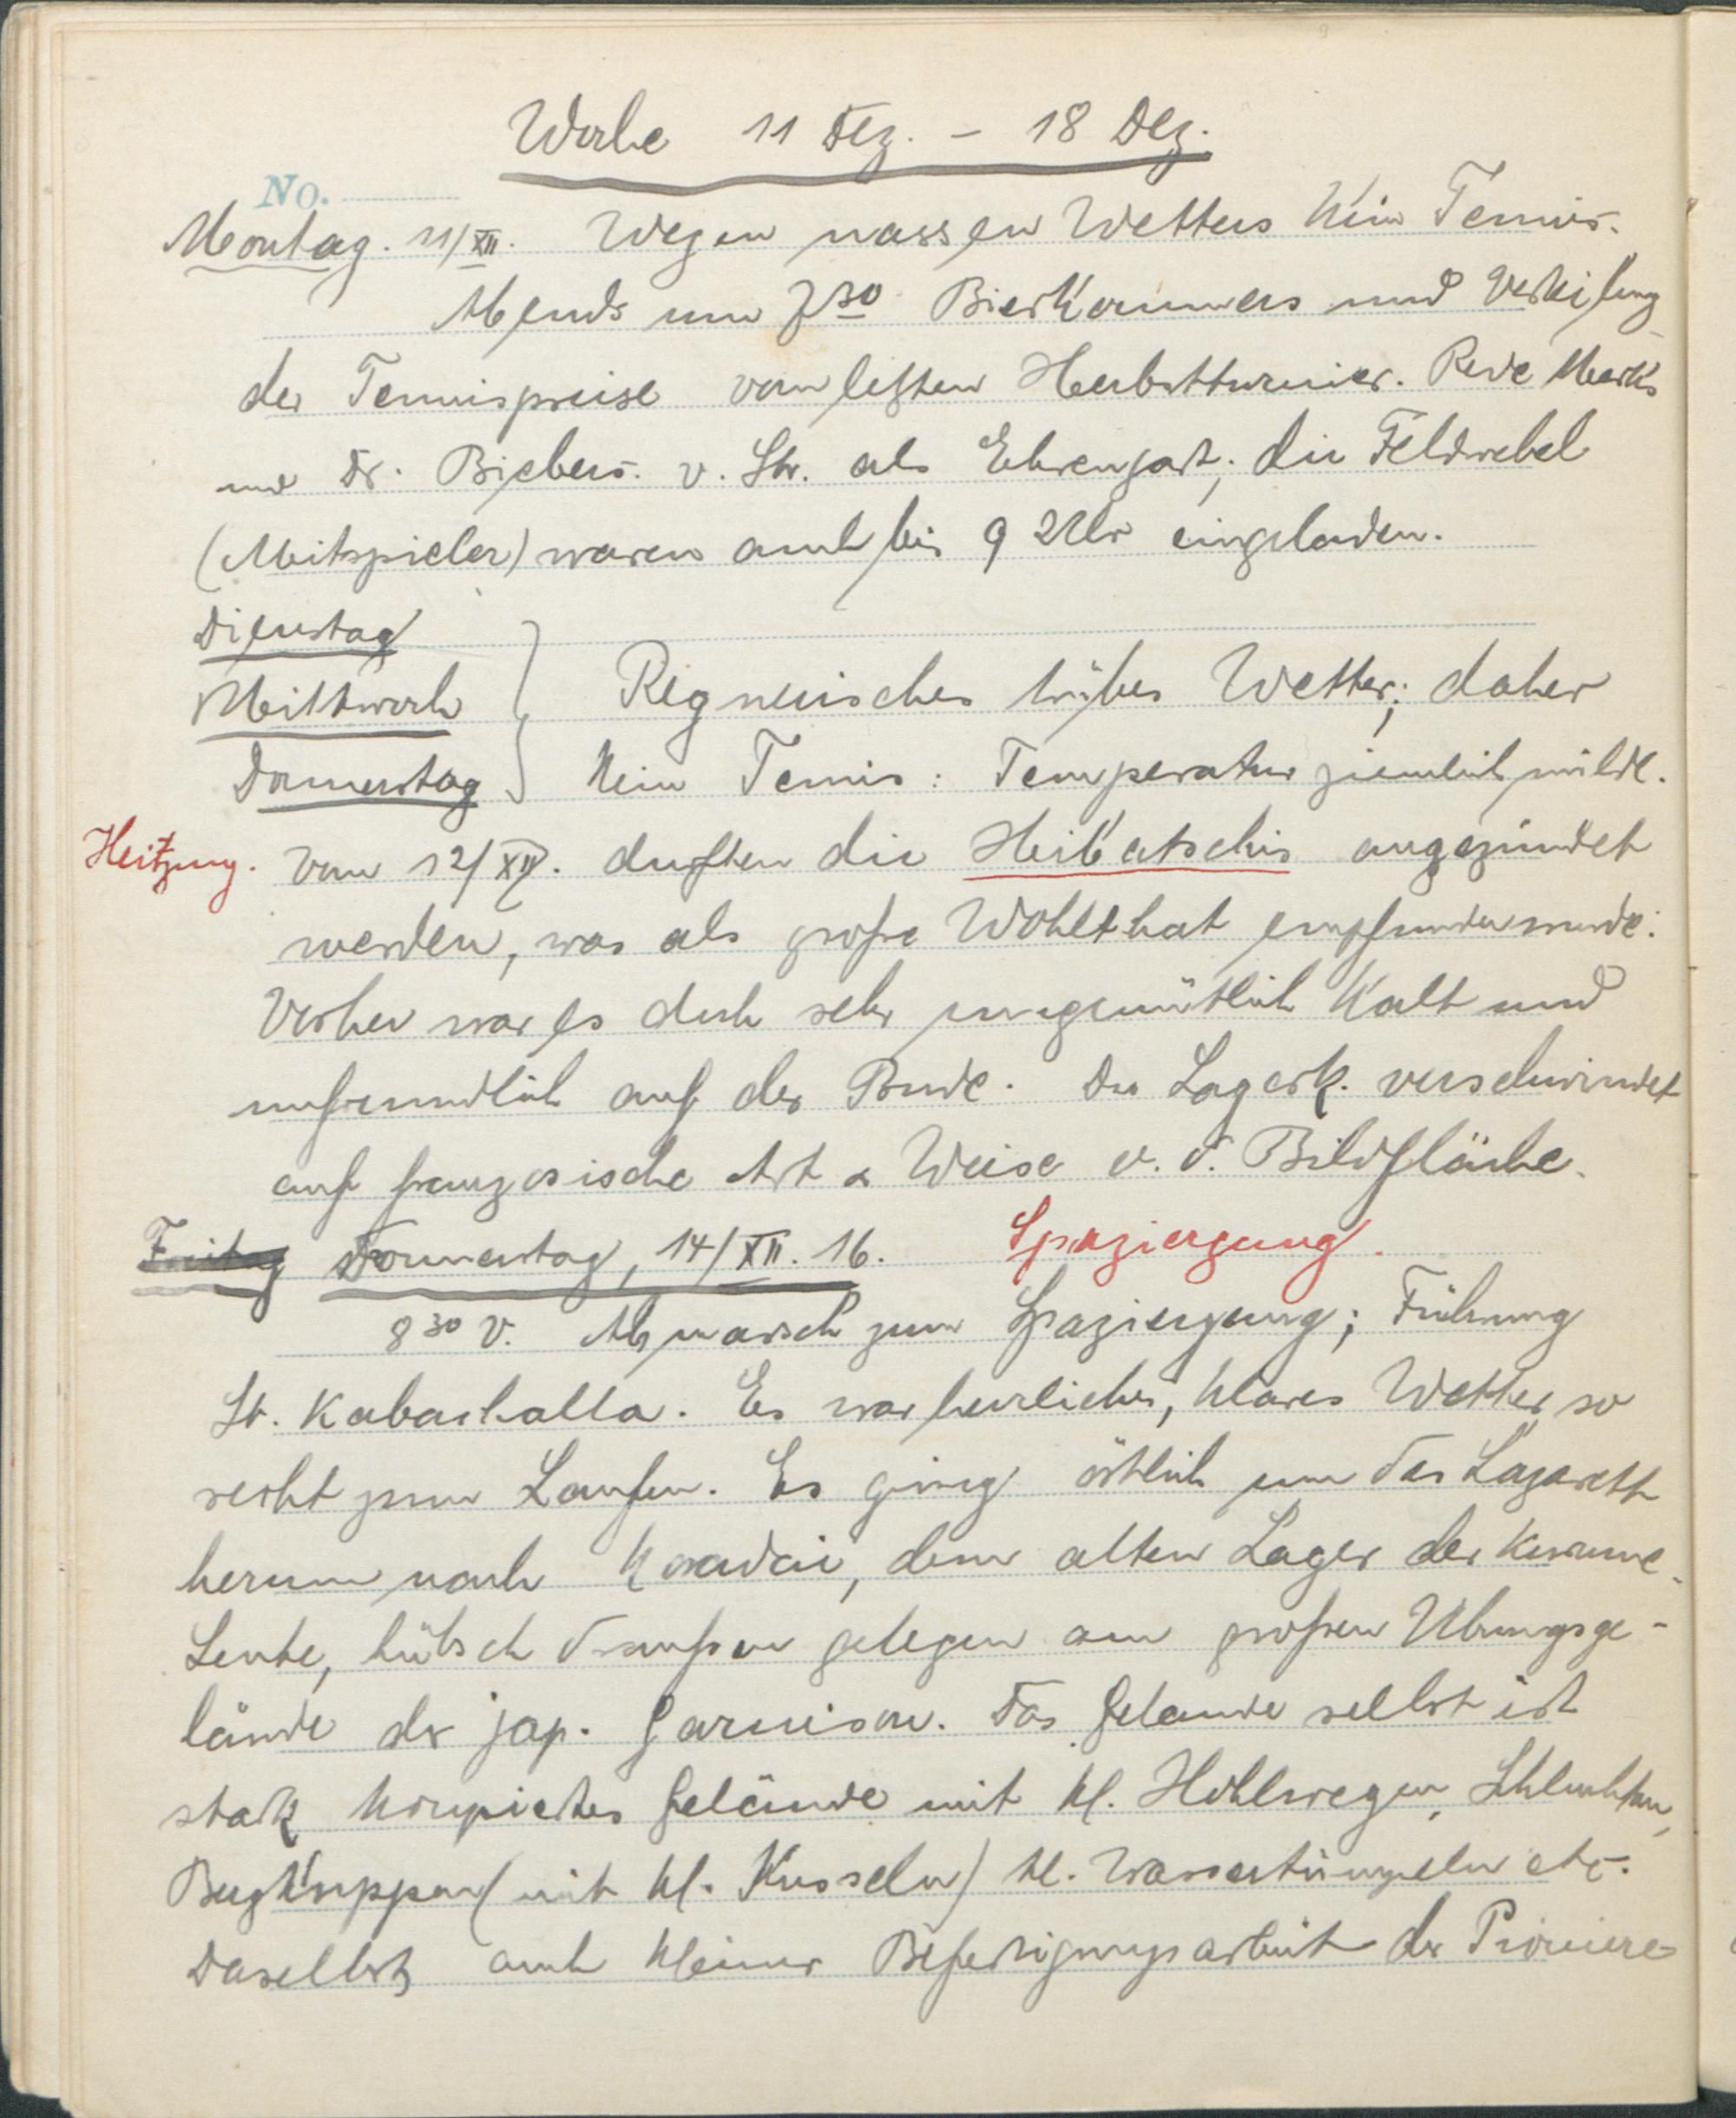 Woche 11 Dez. - 18 Dez.
No.
Montag. 11/XII. Wegen nassen Wetters kein Tennis.
Abends um 7³⁰ Bierkommers und Verteilung
der Tennispreise vom letzten Herbstturnier. Rede Mark's
und Dr. Biebers. v. Str. als Ehrengast; die Feldwebel
(Mitspieler) waren auch bis 9 Uhr eingeladen.
Dienstag
Mittwoch } Regnerisches trübes Wetter; daher
Donnerstag } kein Tennis: Temperatur ziemlich milde.
Heitzung. Vom 12/XII. durften die Hibatschis angezündet
werden, was als große Wohlthat empfunden wurde.
Vorher war es doch sehr ungemütlich kalt und
unfreundlich auf der Bude. Der Lagerk. verschwindet
auf französische Art & Weise v. d. Bildfläche.
Freitag Donnerstag, 14/XII. 16. Spaziergang.
8³⁰ V. Abmarsch zum Spaziergang; Führung
Lt. Kabachalla. Es war herrliches, klares Wetter so
recht zum Laufen. Es ging östlich um das Lazarett
herum nach Koradai, dem alten Lager der Kurume-
Leute, hübsch draußen gelegen am großen Übungsge-
lände der jap. Garnison. Das Gelände selbst ist
stark koupiertes Gelände mit kl. Hohlwegen, Schluchten,
Bergkuppen (mit kl. Kusseln) kl. Wassertümpeln etc.
Daselbst auch kleiner Befestigungsarbeit der Pioniere